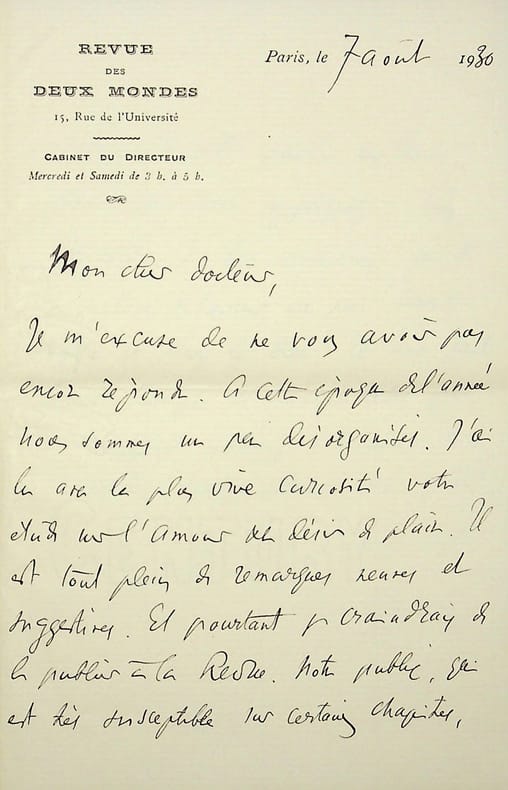 REVUE
DES
DEUX MONDES
15, Rue de l'Université
CABINET DU DIRECTEUR
Mercredi et Samedi de 3 h. à 5 h.
Paris, le 7 août 1930
Mon cher docteur,
Je m'excuse de ne vous avoir pas
encore répondu. A cette époque de l'année
nous sommes un peu désorganisés. J'ai
lu avec la plus vive curiosité votre
étude sur l'amour et le désir de plaire. Il
est tout plein de remarques neuves et
suggestives. Et pourtant je craindrais de
le publier à la Revue. Notre public, qui
est très susceptible sur certains chapitres,